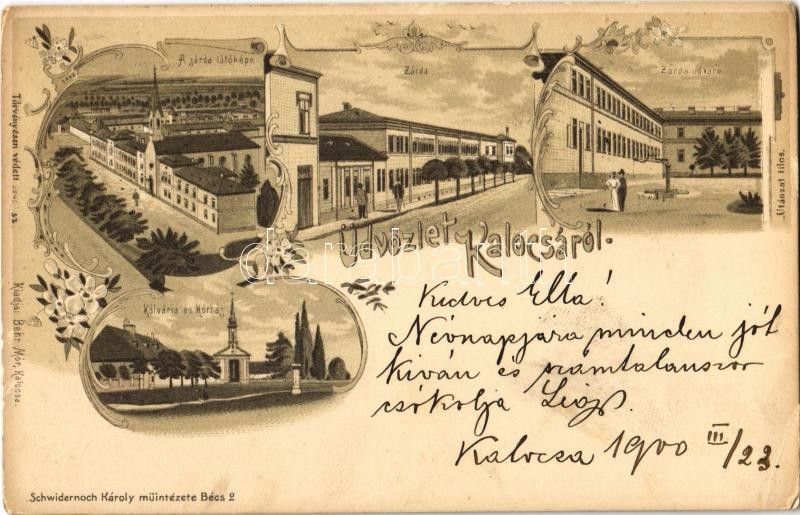 A zárda látóképe
Zárda
Zárda udvara
Törvényesen védett sz.
Utánzat tilos.
Üdvözlet Kalocsáról.
darabanth
Kálvária és Kórház
Kiadja: Behr Mór, Kalocsa.
Kedves Ella!
Névnapjára minden jót
kíván és számtalanszor
csókolja
Kalocsa 1900 III/23.
Schwidernoch Károly müintézete Bécs 2